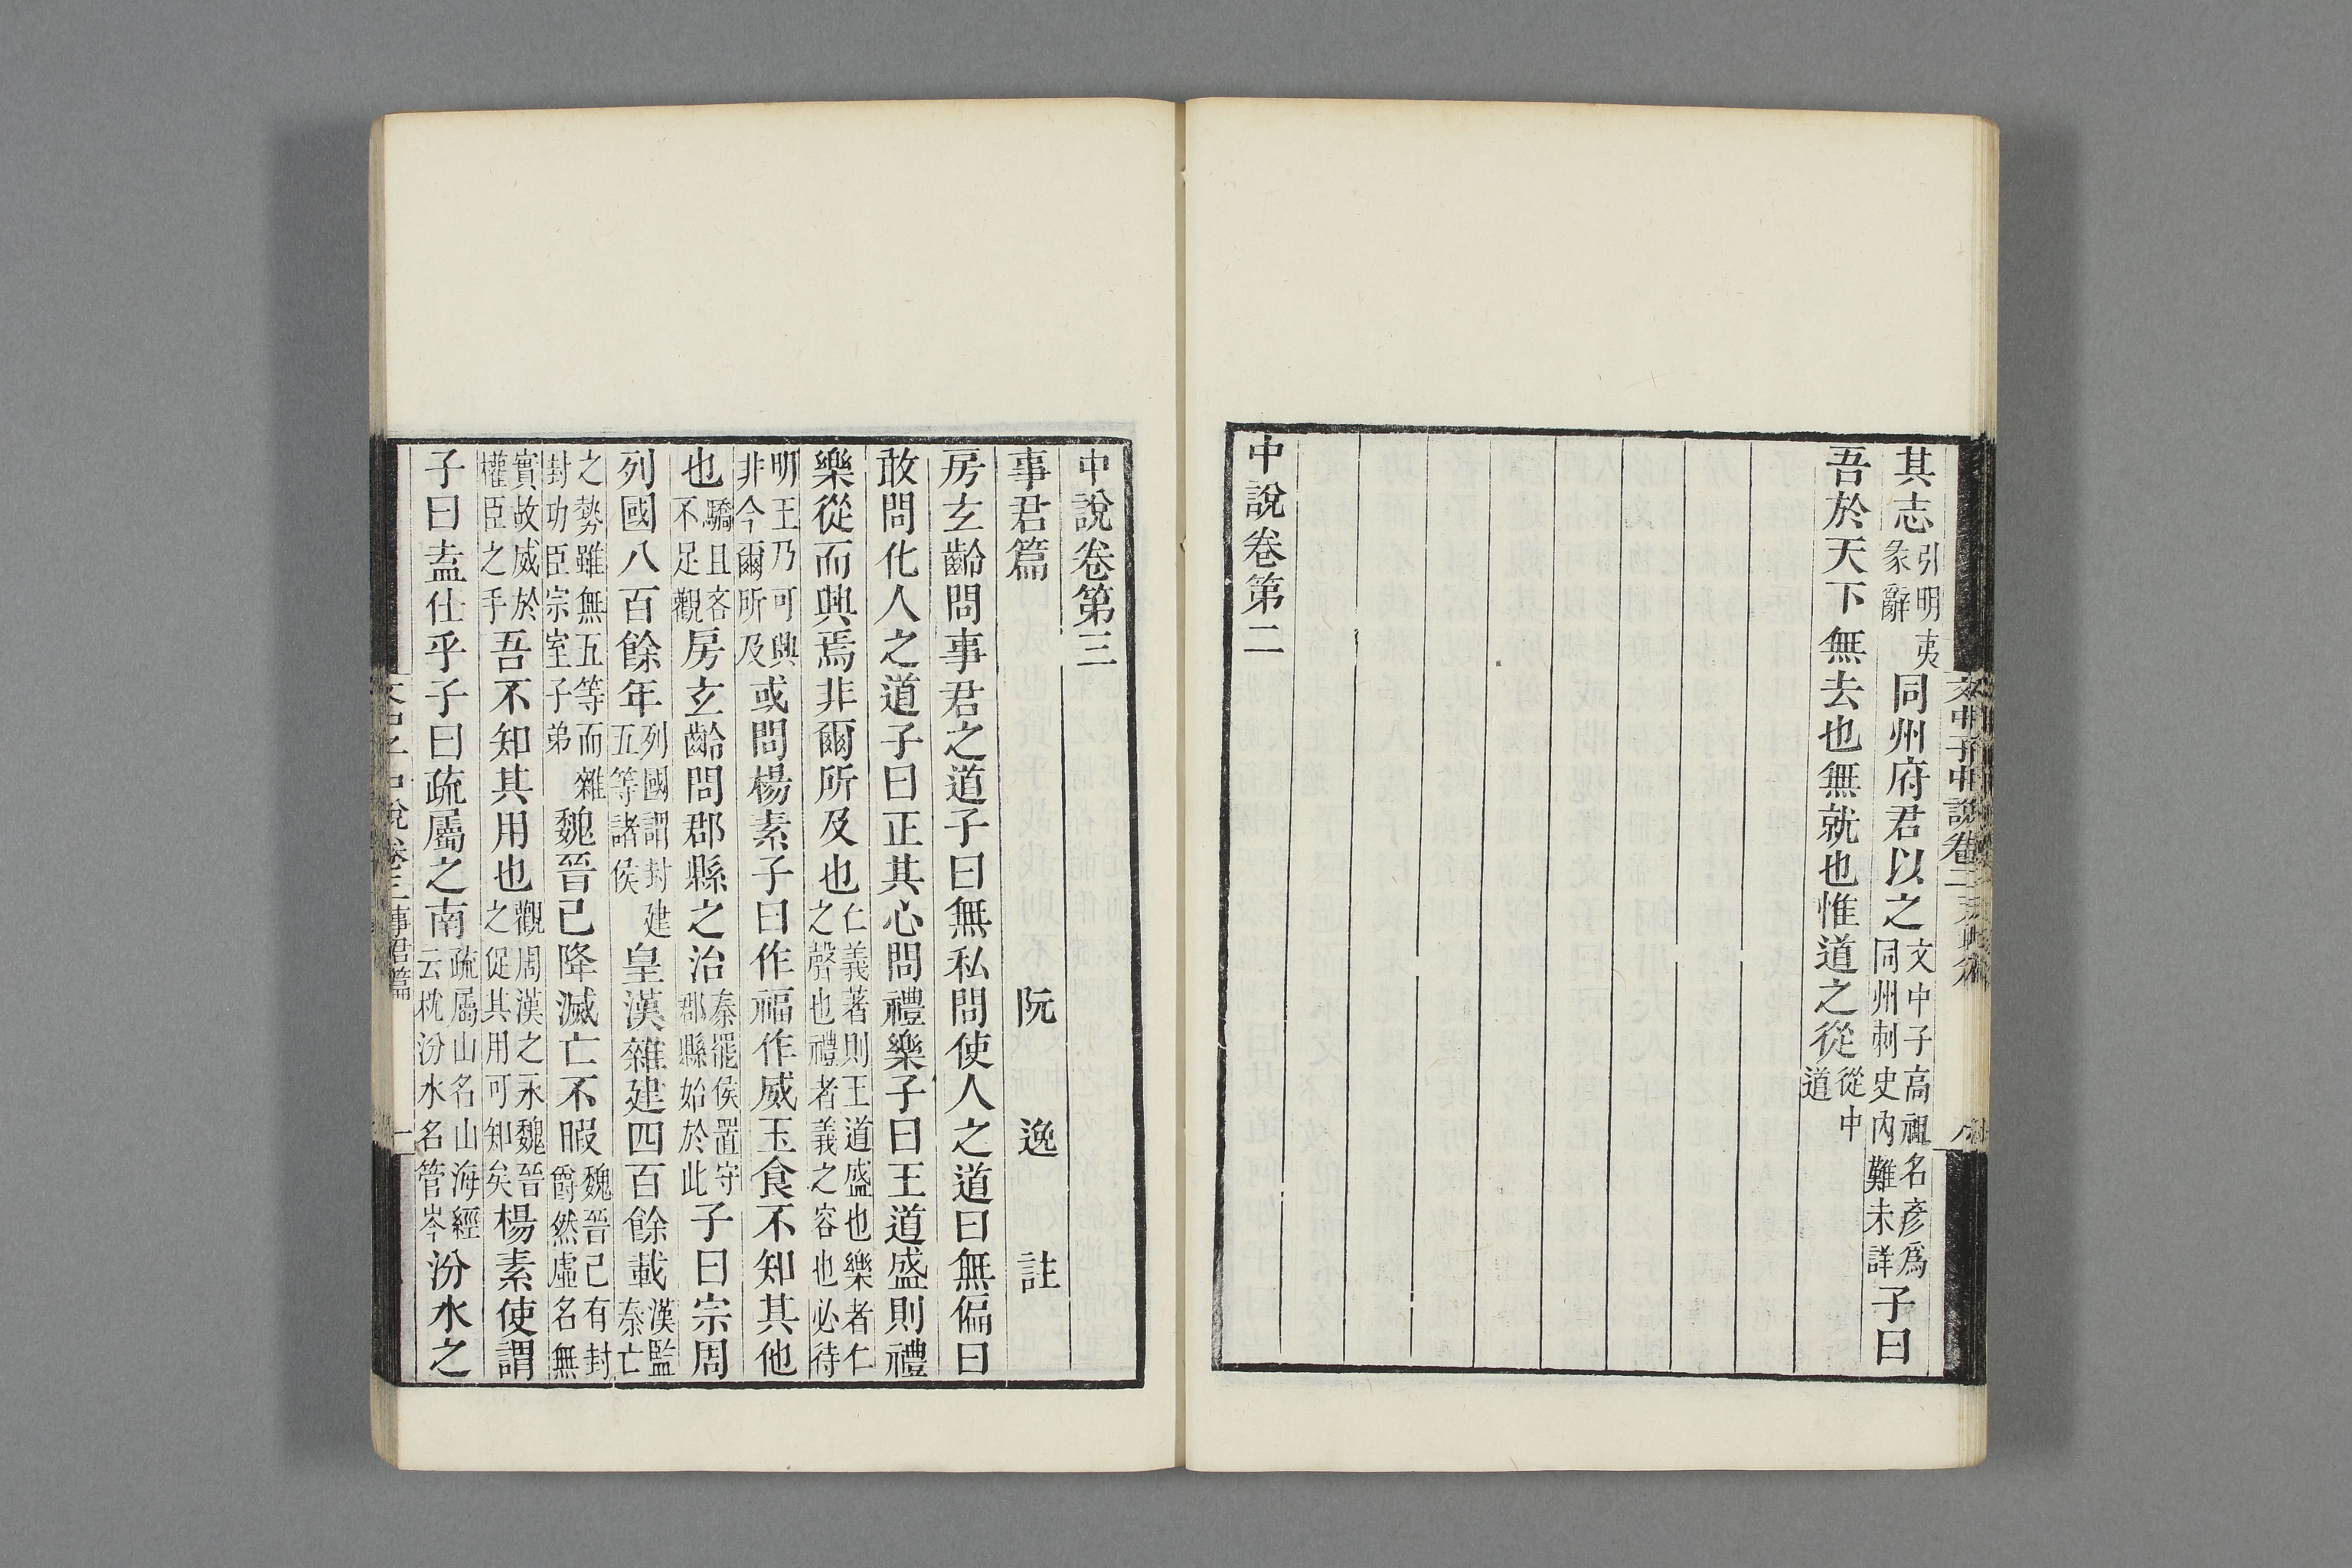 其志引明夷彖辭同州府君以之文中子高祖名彥爲同州刺史內難未詳子曰
吾於天下無去也無就也惟道之從從中道
中說卷第二
中說卷第三
事君篇 阮逸註
房玄齡問事君之道子曰無私問使人之道曰無偏曰
敢問化人之道子曰正其心問禮樂子曰王道盛則禮
樂從而興焉非爾所及也仁義著則王道盛也樂者仁之聲也禮者義之容也必待
明王乃可興非今爾所及或問楊素子曰作福作威玉食不知其他
也驕且吝不足觀房玄齡問郡縣之治秦罷侯置守郡縣始於此子曰宗周
列國八百餘年列國謂封建五等諸侯皇漢雜建四百餘載漢監秦亡
之勢雖無五等而雜封功臣宗室子弟魏晉已降滅亡不暇魏晉已有封爵然虛名無
實故威於權臣之手吾不知其用也觀周漢之永魏晉之促其用可知矣楊素使謂
子曰盍仕乎子曰疏屬之南疏屬山名山海經云枕汾水名管岑汾水之
文中子中說卷三事君篇 一